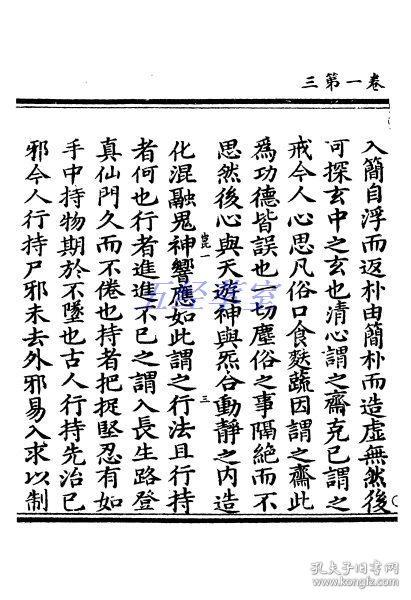 卷一第三
入簡自浮而返朴由簡朴而造虛無然後
可探玄中之玄也清心謂之齋克已謂之
戒今人心思凡俗口食麩蔬因謂之齋此
爲功德皆誤也一切塵俗之事隔絶而不
思然後心與天遊神與炁合動靜之内造
崑一
三
化混融鬼神響應如此謂之行法且行持
者何也行者進進不已之謂入長生路登
真仙門久而不倦也持者把捉堅忍有如
手中持物期於不墜也古人行持先治已
邪今人行持尸邪未去外邪易入求以制
五经書室
孔夫子旧書网